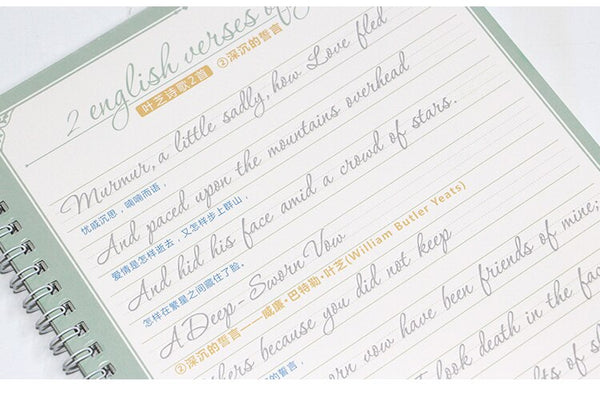 2 english verses of
叶芝诗歌2首 ②深沉的誓言
Murmur, a little sadly, how Love fled
忧戚沉思，喃喃而语，
And paced upon the mountains overhead
爱情是怎样逝去，又怎样步上群山，
And hid his face amid a crowd of stars.
怎样在繁星之间藏住了脸。
A Deep-Sworn Vow
②深沉的誓言——威廉·巴特勒·叶芝(William Butler Yeats)
hers because you did not keep
的誓言，
rn vow have been friends of mine;
look death in the fac
ts of s